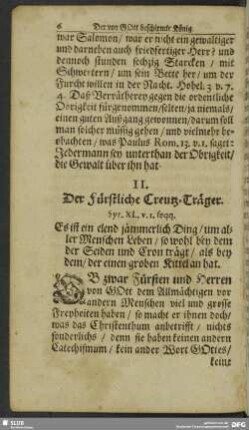 6 Der von GOtt beschirmte König.
war Salomon / war er nicht ein gewaltiger
und darneben auch friedfertiger Herr? und
dennoch stunden sechzig Starcken / mit
Schwertern / um sein Bette her / um der
Furcht willen in der Nacht. Hohel. 3 v. 7.
4. Daß Verrätherey gegen die ordentliche
Obrigkeit fürgenommen / selten / ja niemals /
einen guten Außgang gewonnen / darum soll
man solcher müßig gehen / und vielmehr be-
obachten / was Paulus Rom. 13. v. 1. saget:
Jedermann sey unterthan der Obrigkeit /
die Gewalt über ihn hat.
II.
Der Fürstliche Creutz-Träger.
Syr. XL. v. 1. seqq.
Es ist ein elend jämmerlich Ding / um al-
ler Menschen Leben / so wohl bey dem
der Seiden und Cron trägt / als bey
dem / der einen groben Kittel an hat.
OB zwar Fürsten und Herren
von GOtt dem Allmächtigen vor
andern Menschen viel und grosse
Freyheiten haben / so macht er ihnen doch /
was das Christenthum anbetrifft / nichts
sonderlichs / denn sie haben keinen andern
Catechismum / kein ander Wort GOttes /
kein
SLUB